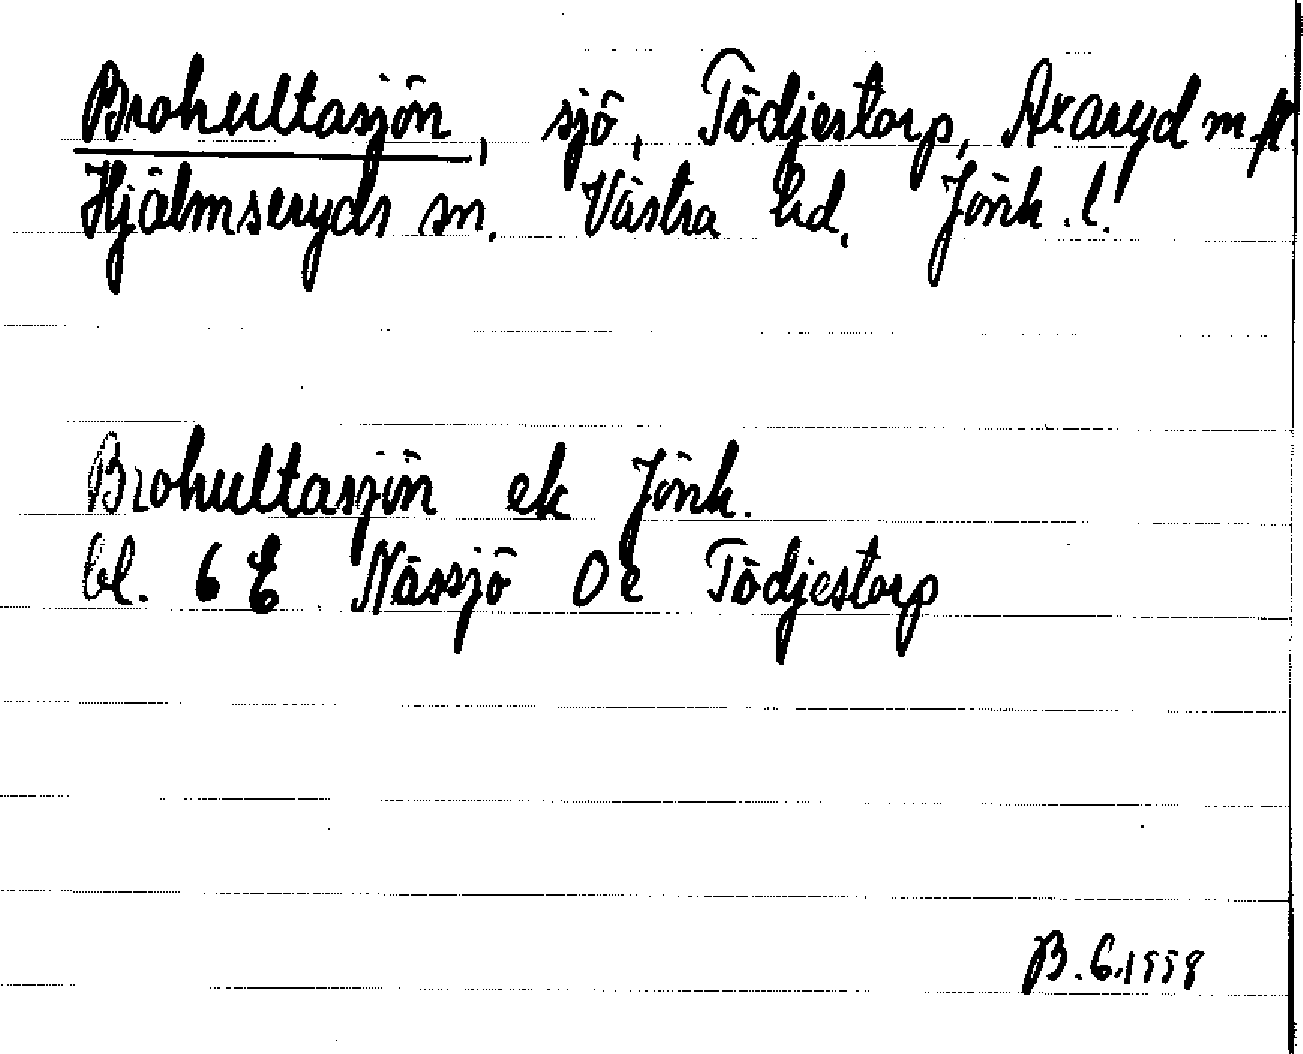 Brohultasjön, sjö, Tödjestorp, Axaryd m.fl.
Hjälmseryds sn. Västra hd. Jönk.l.
Brohultasjön ek Jönk.
bl. 6 E Nässjö 0 e Tödjestorp
B.G.1998